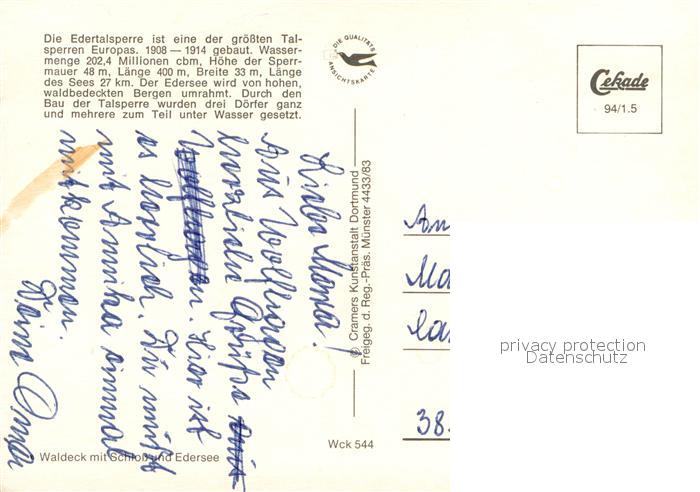 Die Edertalsperre ist eine der größten Tal-
sperren Europas. 1908 — 1914 gebaut. Wasser-
menge 202,4 Millionen cbm, Höhe der Sperr-
mauer 48 m, Länge 400 m, Breite 33 m, Länge
des Sees 27 km. Der Edersee wird von hohen,
waldbedeckten Bergen umrahmt. Durch den
Bau der Talsperre wurden drei Dörfer ganz
und mehrere zum Teil unter Wasser gesetzt.
DIE QUALITÄTS
ANSICHTSKARTE
Cekade
94/1.5
Liebe Mona!
Aus Wolfhagen
herzliche Grüße
Hier ist
es herrlich. Du mußt
mit Annika einmal
mitkommen.
Deine Oma
© Cramers Kunstanstalt Dortmund
Freigeg. d. Reg.-Präs. Münster 4433/83
An
Ma
38
privacy protection
Datenschutz
Wck 544
Waldeck mit Schloß und Edersee